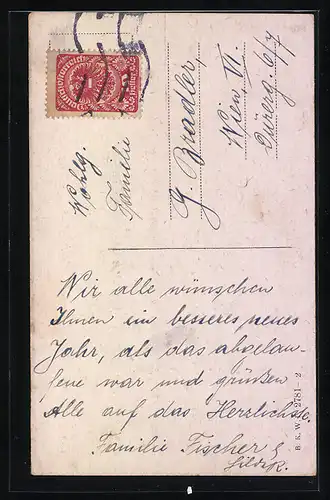 Wohlg.
Familie
G. Bradler,
Wien, VI.
Dürerg. 6/7
Wir alle wünschen
Ihnen ein besseres neues
Jahr, als das abgelau-
fene war und grüßen
Alle auf das Herzlichste.
Familie Fischer &
B. K. W. I. 2781 - 2